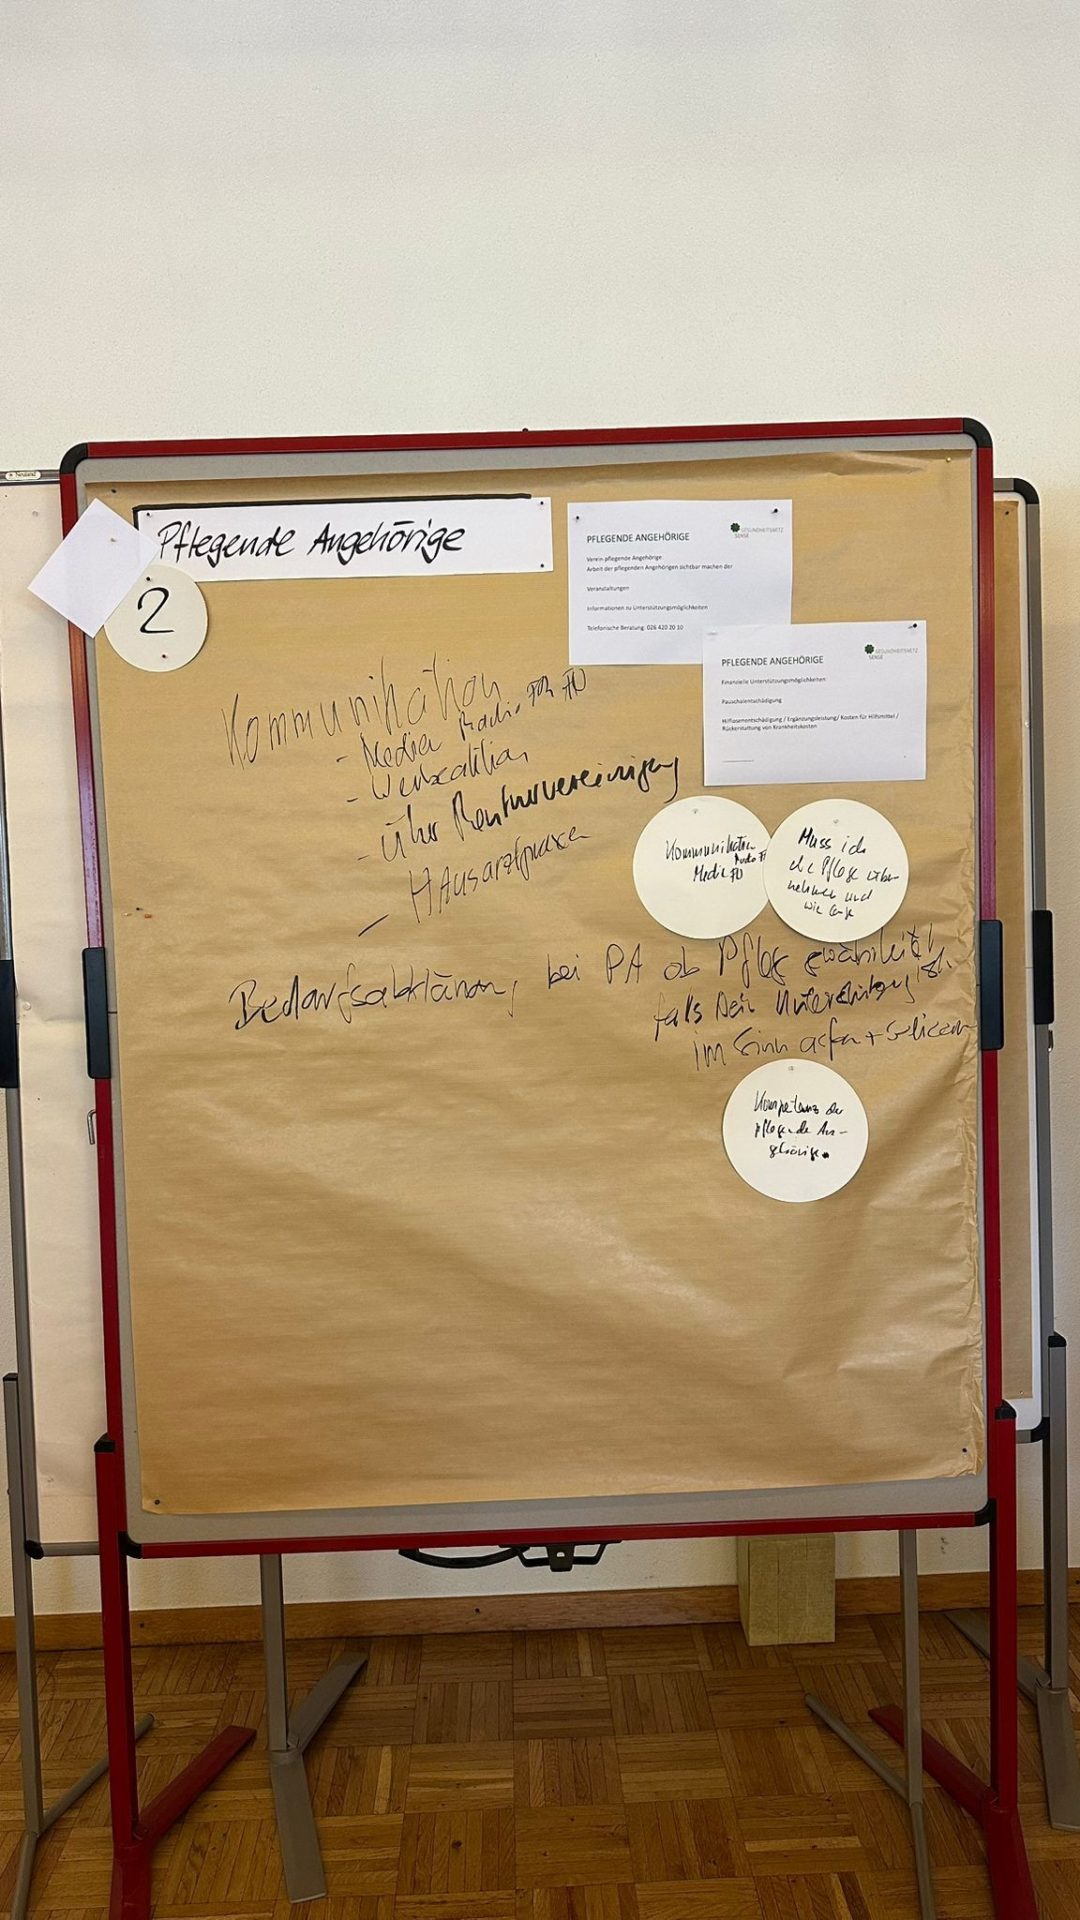 Pflegende Angehörige
2
PFLEGENDE ANGEHÖRIGE
GESUNDHEITSNETZ
SENSE
Verein pflegende Angehörige
Arbeit der pflegenden Angehörigen sichtbar machen der
Veranstaltungen
Informationen zu Unterstützungsmöglichkeiten
Telefonische Beratung: 026 420 20 10
PFLEGENDE ANGEHÖRIGE
GESUNDHEITSNETZ
SENSE
Finanzielle Unterstützungsmöglichkeiten
Pauschalentschädigung
Hilflosenentschädigung / Ergänzungsleistung/ Kosten für Hilfsmittel /
Rückerstattung von Krankheitskosten
Kommunikation
- Medien Radio FR FN
- Werbeaktion
- über Rentnervereinigung
- Hausarztpraxen
Kommunikation
Radio
Medie FN
Muss ich
die Pflege über-
nehmen und
wie lange
Bedarfsabklärung bei PA ob Pflege gewährleistet
falls Nein Unterstützung
im Sinn
Kompetenz der
pflegende An-
gehörige.
Neuland